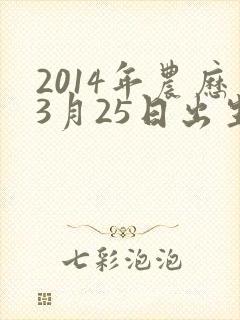 2014年農歷
3月25日出生
七彩泡泡